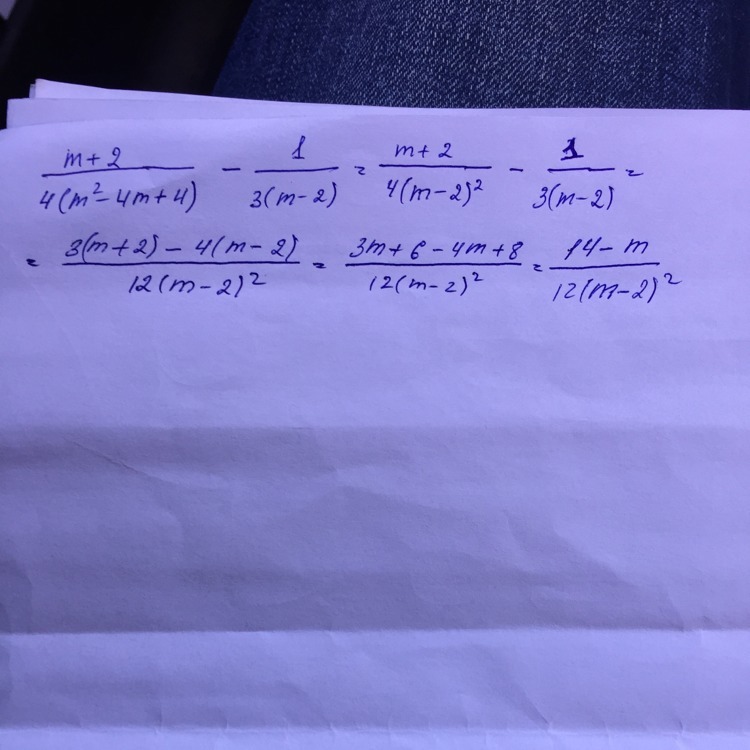 (m+2)/(4(m²-4m+4)) - 1/(3(m-2)) = (m+2)/(4(m-2)²) - 1/(3(m-2)) =
= (3(m+2) - 4(m-2))/(12(m-2)²) = (3m+6-4m+8)/(12(m-2)²) = (14-m)/(12(m-2)²)